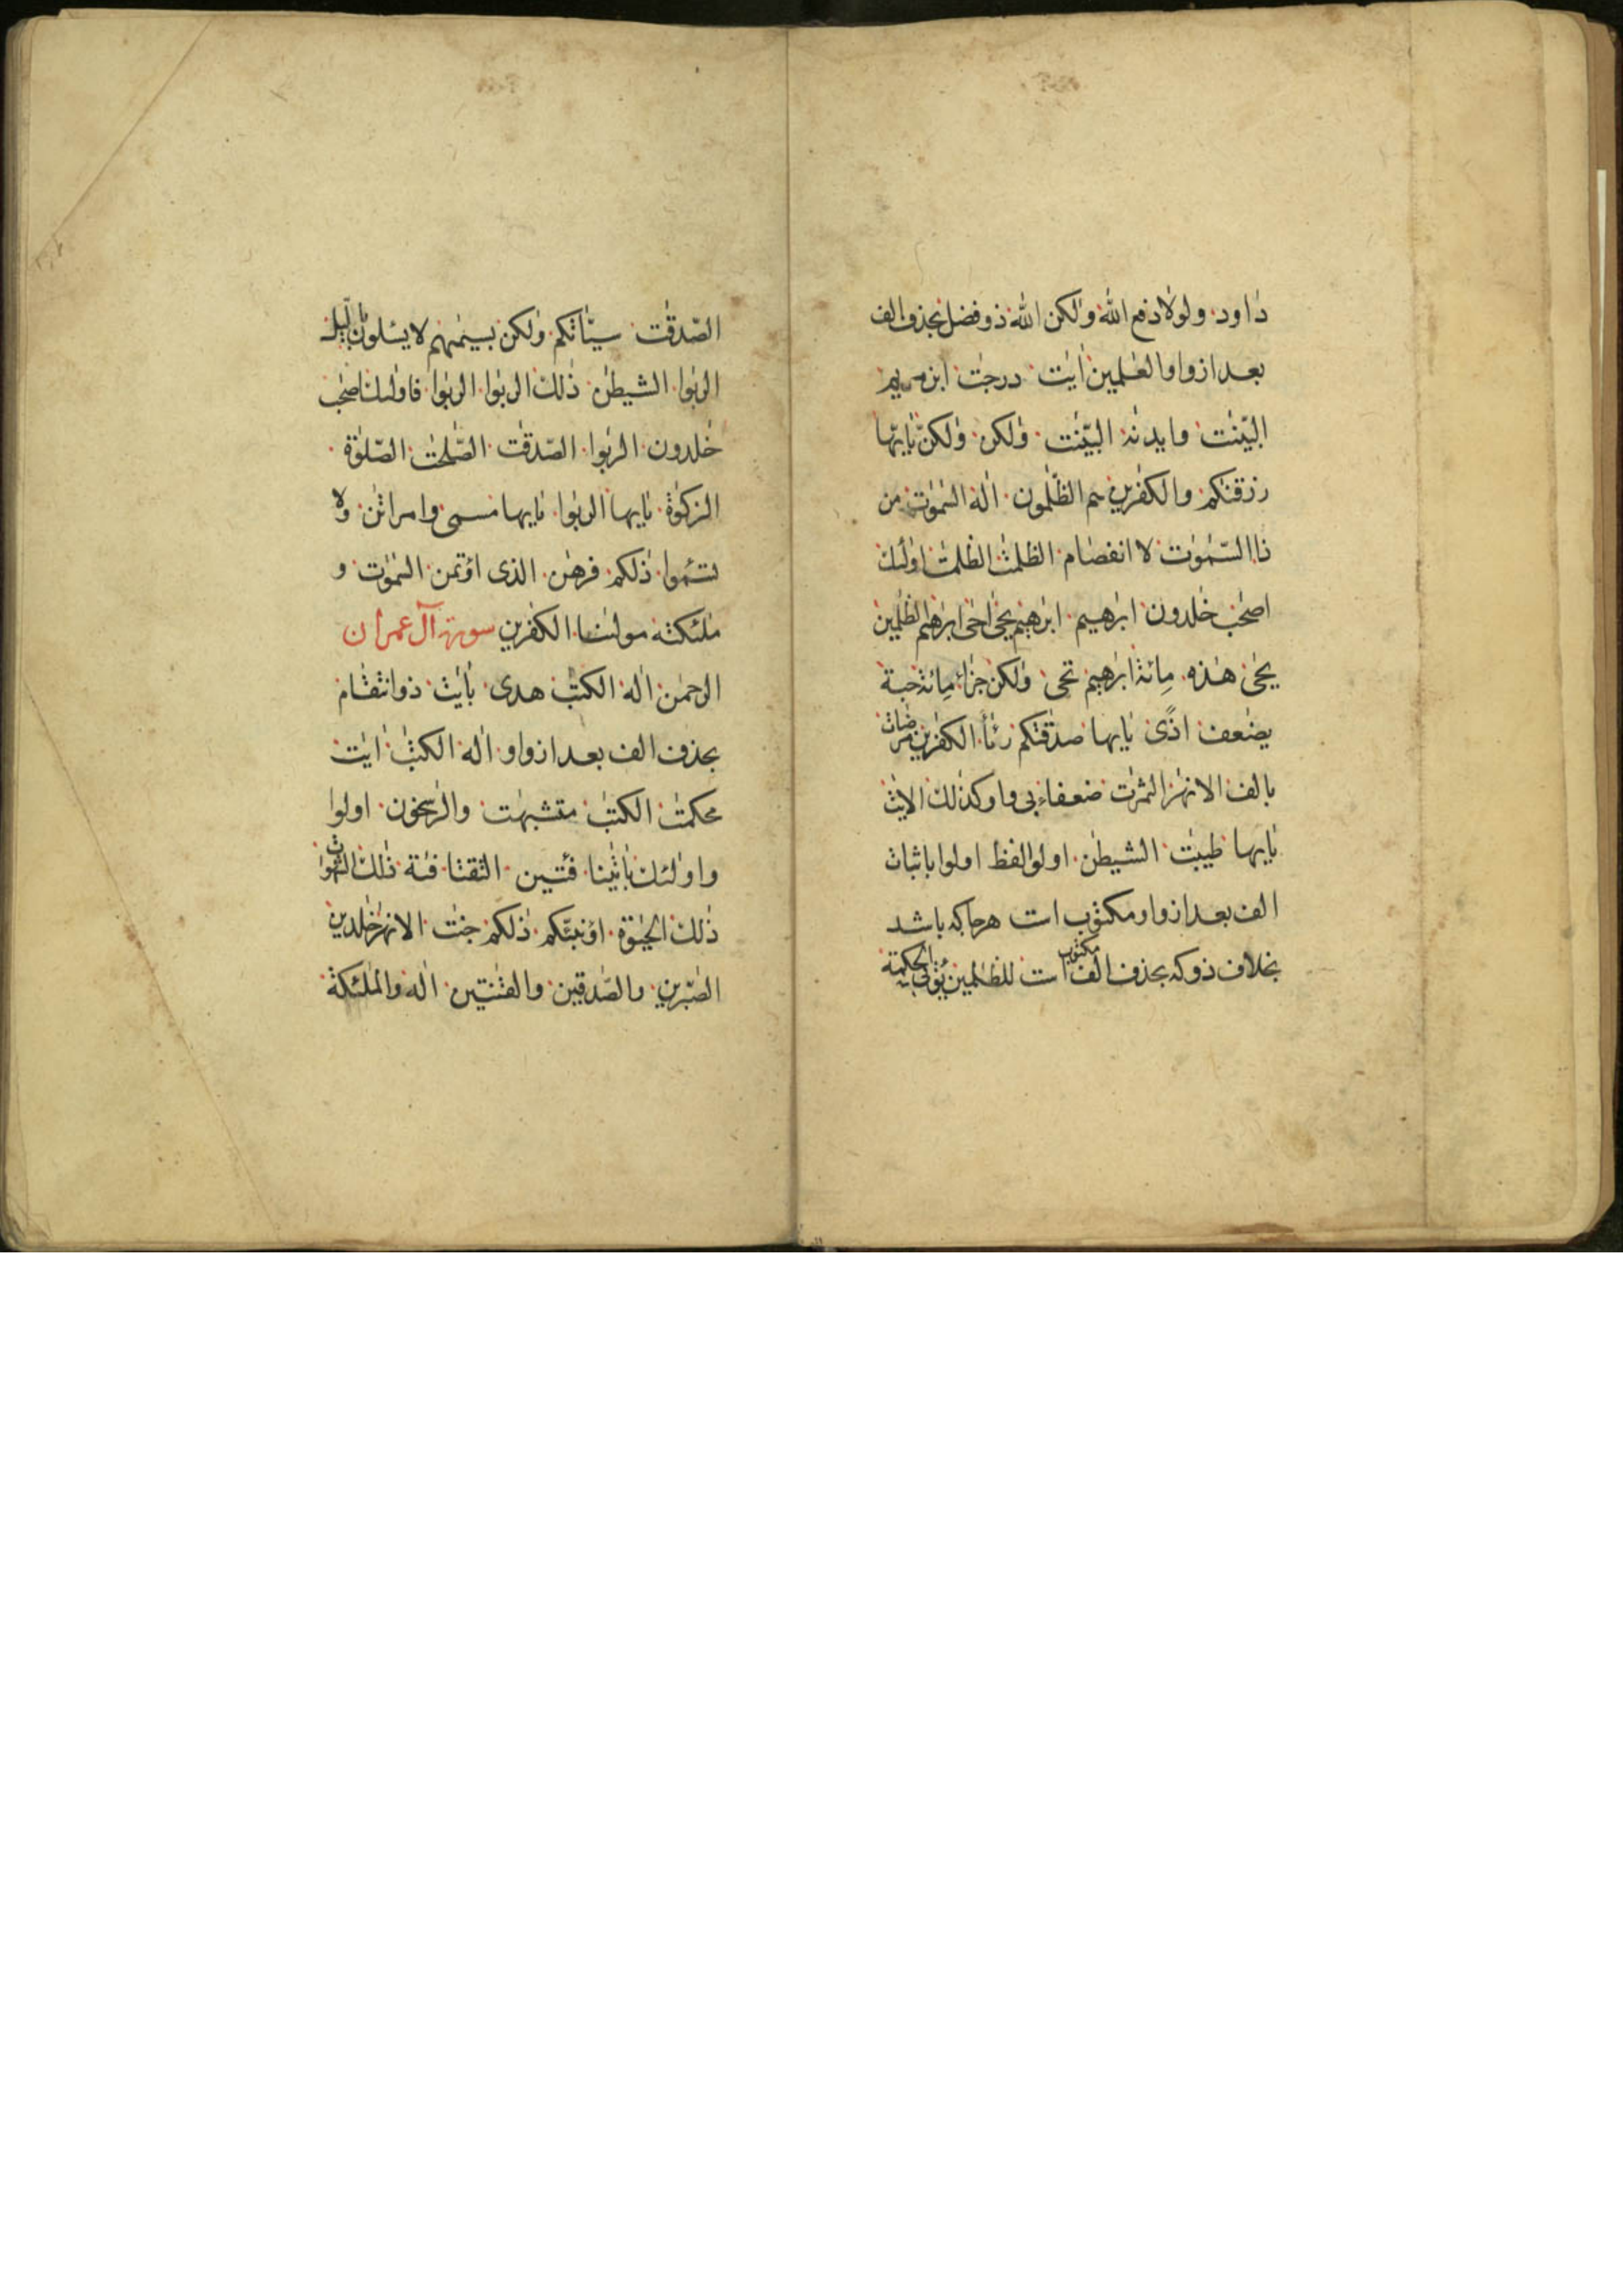 داود ولولا دفع الله ولٰكن الله ذو فضل بحذف الف
بعد از واو العٰلمين اٰيٰت درجٰت ابن مريم
البيّنٰت وايدنٰه البيّنٰت ولٰكن ولٰكنّ يٰايّها
رزقنٰكم والكٰفرين هم الظّٰلمون اله السّمٰوٰت من
ذا السّمٰوٰت لا انفصام الظلمٰت الظلمٰت اولٰئك
اصحٰب خٰلدون ابرٰهيم ابرٰهيم يحى احى ابرٰهيم الظٰلمين
يحى هٰذه مائة ابرٰهيم تحى ولٰكن جزاء مائة حبة
يضٰعف اذًى يٰايها صدقٰتكم رئآ الكٰفرين مرضات
بالف الانهٰر الثمرٰت ضعفاء بى واو كذٰلك الايٰت
يٰايها طيبٰت الشيطٰن اولوا لفظ اولوا باثبات
الف بعد از واو مكتوب است هرجا كه باشد
بخلاف ذو كه بحذف الف مكتوب است للظٰلمين يؤتى الحكمة
الصّدقٰت سيّاتكم ولٰكن بسيمٰهم لا يسئلون باليل
الربٰوا الشيطٰن ذٰلك الربٰوا الربٰوا فاولئك اصحٰب
خٰلدون الربٰوا الصّدقٰت الصّٰلحٰت الصّلوٰة
الزكوٰة يٰايها الربٰوا يٰايها مسمى وامراتٰن ولا
تسئموا ذٰلكم فرهٰن الذى اؤتمن السّمٰوٰت و
ملٰئكته مولٰنا الكٰفرين سورة آل عمران
الرحمٰن اله الكتٰب هدى باٰيٰت ذو انتقام
بحذف الف بعد از واو اله الكتٰب اٰيٰت
محكمٰت الكتٰب متشبهٰت والرّٰسخون اولوا
واولٰئك باٰيٰتنا فئتين التقتا فئة ذٰلك الشهوات
ذٰلك الحيٰوة اؤنبّئكم ذٰلكم جنٰت الانهٰر خٰلدين
الصّٰبرين والصّٰدقين والقٰنتين اله والملٰئكة